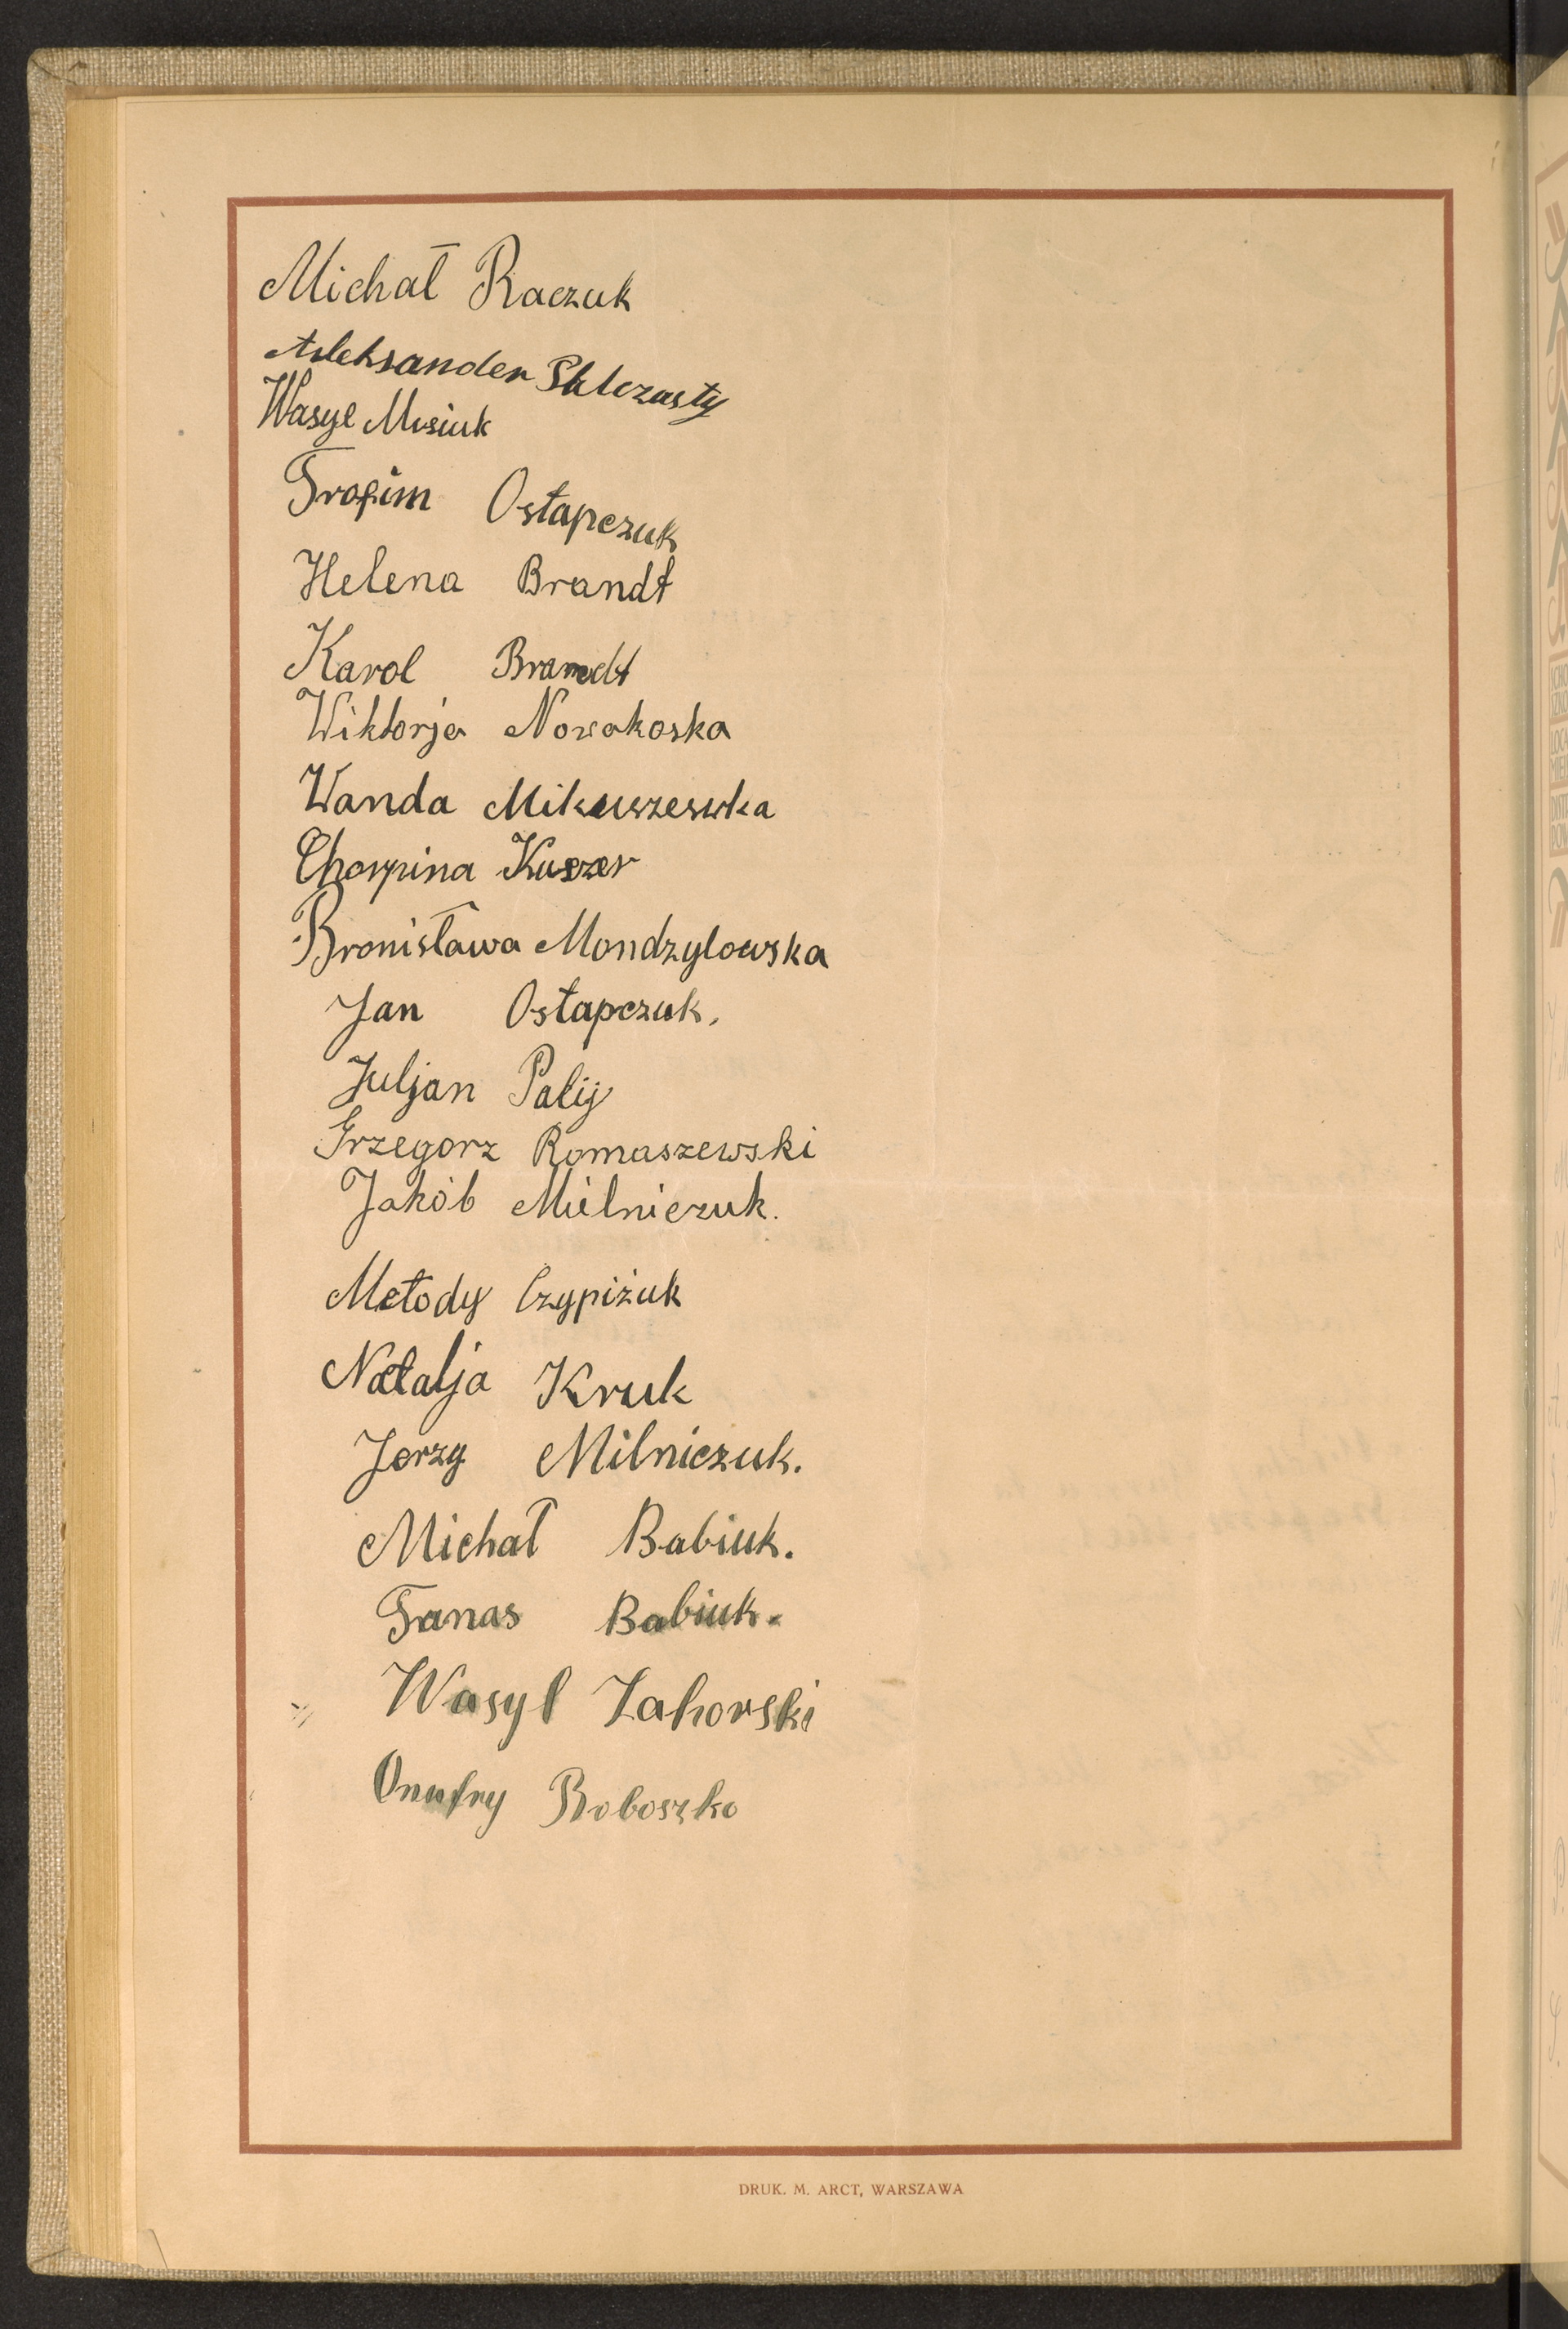 Michał Raczuk
Aleksander Sklezasty
Wasyl Misiuk
Trofim Ostapczuk
Helena Brandt
Karol Brandt
Wiktorja Nowakoska
Wanda Mikuszeswka
Chorpina Kuszer
Bronisława Mondzylowska
Jan Ostapczuk.
Juljan Palij
Grzegorz Romaszewski
Jakób Mielniczuk.
Metody Czypiżuk
Natalja Kruk
Jerzy Milniczuk.
Michał Babiuk.
Tanas Babiuk.
Wasyl Zahorski
Onufry Roboszko
DRUK. M. ARCT, WARSZAWA